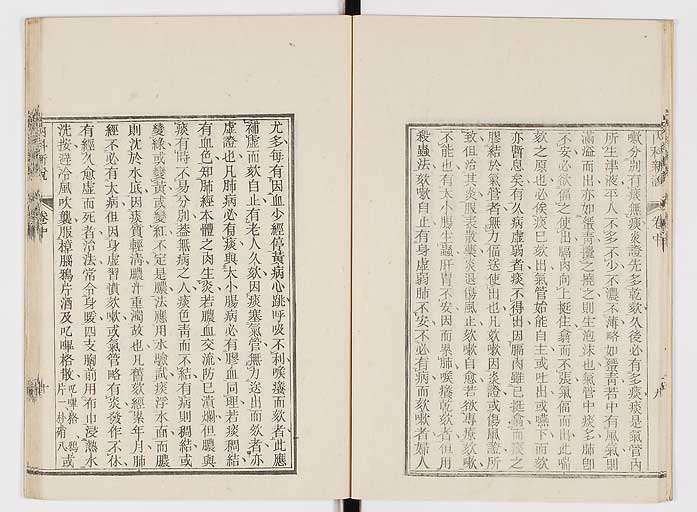 內科新說 卷中
嗽分別有痰無痰炎證先多乾欬久後必有多痰痰是氣管內
所生津液平人不多不少不濃不薄略如蟹青若中有風氣則
滿溢而出亦如蟹青攪之擾之則生泡沫也氣管中痰多肺卽
不安必欲偪之使出膈肉向上挺住翕而不張氣偪而出此喘
欬之原也必俟痰已欬出氣管始能自主或吐出或嚥下而欬
亦暫息矣有久病虛弱者痰不得出因膈肉雖已挺翕而痰之
膠結於氣管者無力偪送使出也凡欬嗽因炎證或傷風證所
致但治其炎服表散藥炎退傷風止欬嗽自愈若欲專療欬嗽
不能也有大小腸生蟲肝胃不安因而累肺喉癢乾欬者但用
殺蟲法欬嗽自止有身虛弱肺不安不必有病而欬嗽者婦人
尤多每有因血少經停黃病心跳呼吸不利喉癢而欬者此應
補虛而欬自止有老人久欬因痰塞氣管無力送出而欬者亦
虛證也凡肺病必有痰與大小腸病必有膠血同理若痰稠結
有血色知肺經本體之肉生炎若膿血交流防已潰爛但膿與
痰有時不易分別蓋無病之人痰色靑而不結有病則稠結或
變綠或變黃或變紅不定是膿法應用水驗試痰浮水面而膿
則沈於水底因痰質輕清膿汁重濁故也凡舊欬經累年月肺
經不必有大病但因身虛習慣欬嗽或氣管略有炎發作不休
有經久愈虛而死者治法常令身暖四支胸前用布巾浸熱水
洗按避冷風吹襲服樟腦鴉片酒及叱嗶格散 叱嗶格 鴉片一 朴硝八 或
內科新說 卷中